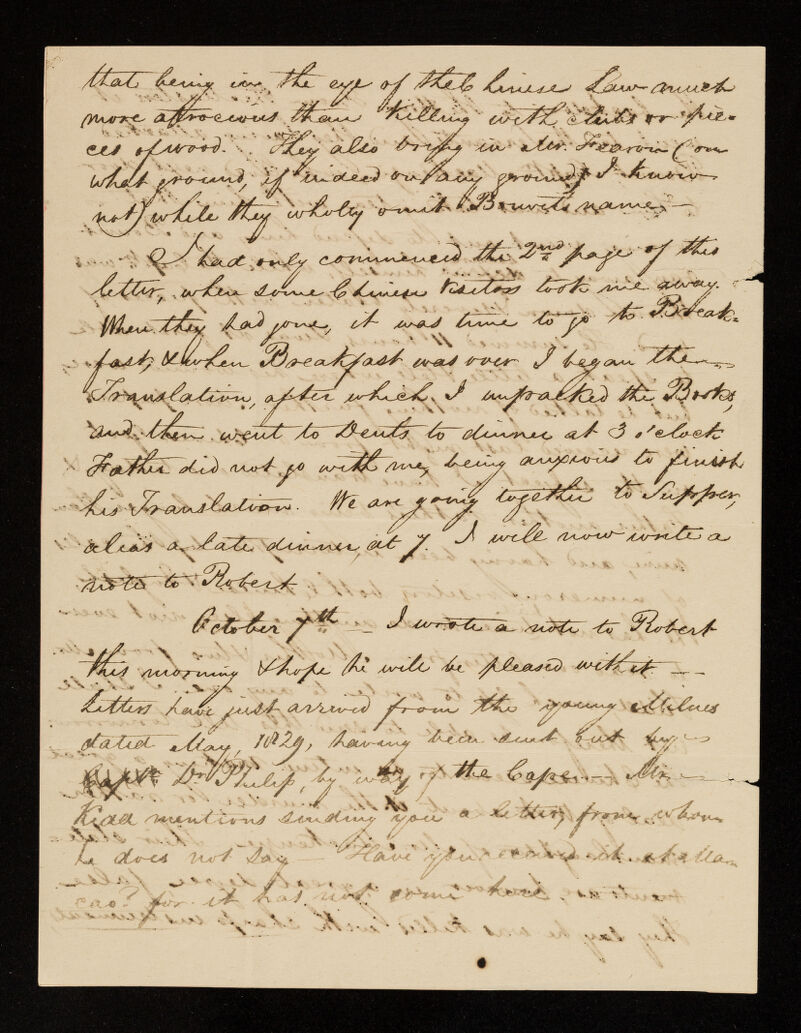 that being in the eye of the Chinese Law much
more atrocious than killing with clubs or pie-
ces of wood. They also bring in Mr. Fearon (on
what ground, if indeed on any ground, I know
not) while they wholly omit Bouvets name. —
I had only commenced the 2nd page of this
letter, when some Chinese visitors took me away.
When they had gone, it was time to go to Break-
fast; & when Breakfast was over I began the
Translation, after which I unpacked the Books,
and then went to Dents to dinner at 3 o'clock
Father did not go with me, being anxious to finish
his Translation. We are going together to Supper,
alias a late dinner, at 7. I will now write a
note to Robert
October 7th — I wrote a note to Robert
this morning & hope he will be pleased with it —
Letters have just arrived from the young Milnes
dated May, 1829, having been sent out by
Dr Philip, by way of the Cape. — Mr
Kidd mentions sending you a letter, from whom
he does not say — Have you received it at Ma-
cao? for it has not come here